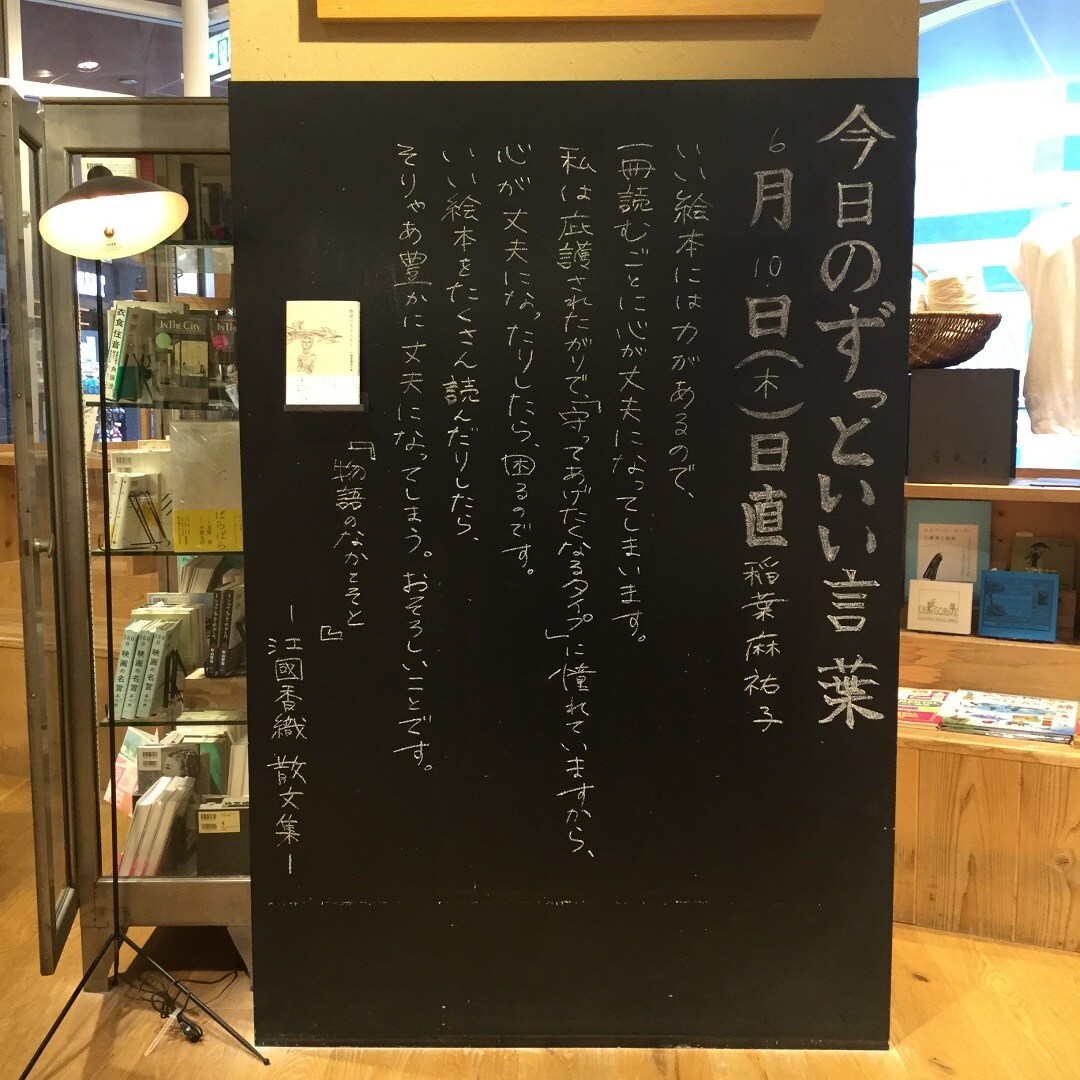 今日のずっといい言葉
6月10日(木)日直 稲葉麻祐子
いい絵本には力があるので、
一冊読むごとに心が丈夫になってしまいます。
私は庇護されたがりで、「守ってあげたくなるタイプ」に憧れていますから、
心が丈夫になったりしたら、困るのです。
いい絵本をたくさん読んだりしたら、
そりゃあ豊かに丈夫になってしまう。おそろしいことです。
『物語のなかとそと』
ー江國香織 散文集ー
衣食住音
IN THE CITY
IN THE
ぱらぱら
映画の名言
映画の名言
映画の名言